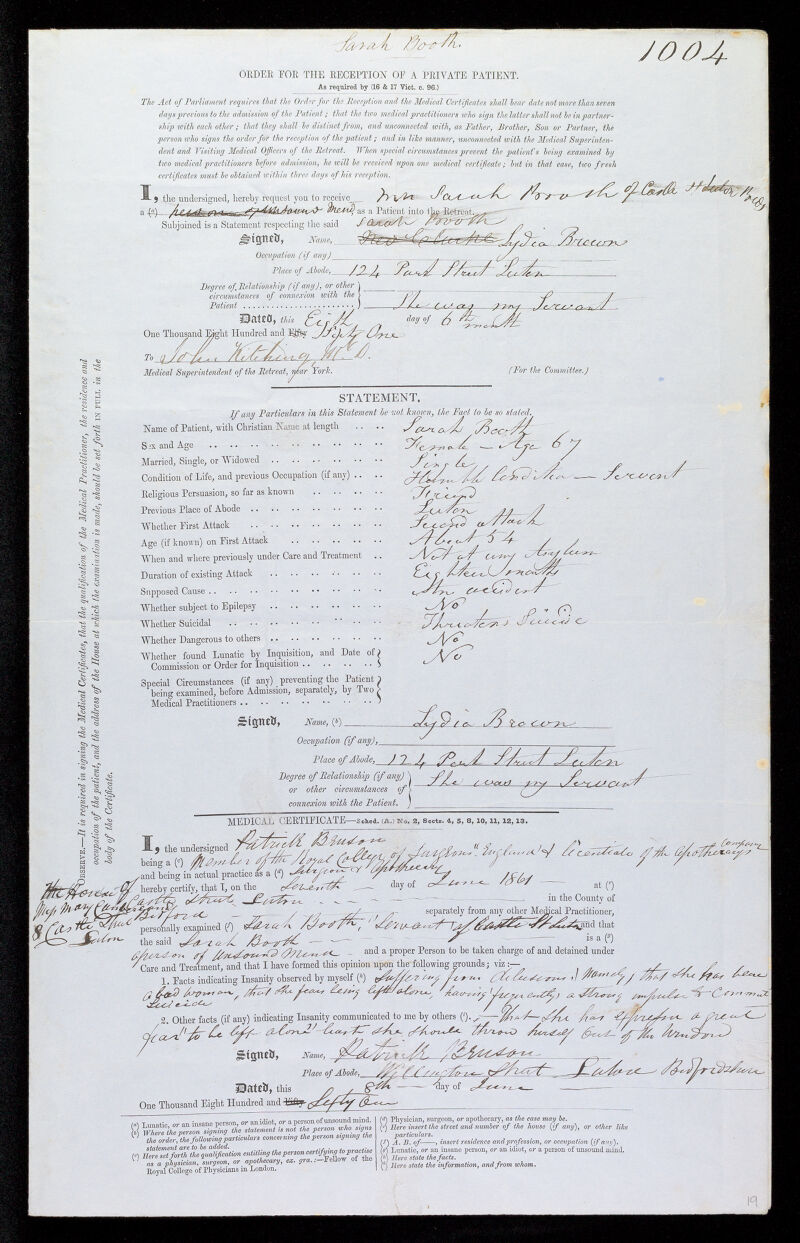 Sarah Booth.
1004
ORDER FOR THE RECEPTION OF A PRIVATE PATIENT.
As required by (16 & 17 Vict. c. 96.)
The Act of Parliament requires that the Order for the Reception and the Medical Certificates shall bear date not more than seven
days previous to the admission of the Patient; that the two medical practitioners who sign the latter shall not be in partner-
ship with each other; that they shall be distinct from, and unconnected with, as Father, Brother, Son or Partner, the
person who signs the order for the reception of the patient; and in like manner, unconnected with the Medical Superinten-
dent and Visiting Medical Officers of the Retreat. When special circumstances prevent the patient's being examined by
two medical practitioners before admission, he will be received upon one medical certificate; but in that case, two fresh
certificates must be obtained within three days of his reception.
I, the undersigned, hereby request you to receive Sarah Booth of Castle St Luton Beds
a (a) person of unsound mind as a Patient into the Retreat.
Subjoined is a Statement respecting the said Sarah Booth
Signed, Name, Lydia Brown
Occupation (if any)
Place of Abode, 124 Park Street Luton
Degree of Relationship (if any), or other
circumstances of connexion with the
Patient She was my Servant
Dated, this Eighth day of 6th month
One Thousand Eight Hundred and Fifty Sixty One
To John Kitching M.D.
Medical Superintendent of the Retreat, near York. (For the Committee.)
STATEMENT.
If any Particulars in this Statement be not known, the Fact to be so stated.
Name of Patient, with Christian Name at length Sarah Booth
Sex and Age Female - Age 67
Married, Single, or Widowed Single
Condition of Life, and previous Occupation (if any) Humble Condition - Servant
Religious Persuasion, so far as known Friend
Previous Place of Abode Luton
Whether First Attack Second attack
Age (if known) on First Attack About 54
When and where previously under Care and Treatment Not at any Asylum
Duration of existing Attack Eighteen months
Supposed Cause An accident
Whether subject to Epilepsy No
Whether Suicidal Threatens Suicide
Whether Dangerous to others No
Whether found Lunatic by Inquisition, and Date of
Commission or Order for Inquisition No
Special Circumstances (if any) preventing the Patient
being examined, before Admission, separately, by Two
Medical Practitioners
Signed, Name, (b) Lydia Brown
Occupation (if any),
Place of Abode, 124 Park Street Luton
Degree of Relationship (if any)
or other circumstances of
connexion with the Patient. She was my Servant
OBSERVE.—It is required in signing the Medical Certificates, that the qualification of the Medical Practitioner, the residence and
occupation of the patient, and the address of the House at which the examination is made, should be set forth IN FULL in the
body of the Certificate.
MEDICAL CERTIFICATE—Sched. (A.) No. 2, Sects. 4, 5, 8, 10, 11, 12, 13.
I, the undersigned Patrick Benson
being a (c) Member of the Royal College of Surgeons "England" & licentiate of the Apothecarys Company
and being in actual practice as a (d) Surgeon & Apothecary
hereby certify, that I, on the Seventh day of June 1861 at (e)
the House of
Miss Mary Ann
8 Castle Street Luton in the County of
Bedford separately from any other Medical Practitioner,
personally examined (f) Sarah Booth, "Servant" of Castle St Luton and that
the said Sarah Booth is a (g)
a person of unsound mind and a proper Person to be taken charge of and detained under
Care and Treatment, and that I have formed this opinion upon the following grounds; viz:—
1. Facts indicating Insanity observed by myself (h) Suffering from delusions, Namely, that she has been
a bad woman, that she fears being left alone, having frequently a strong impulse to Commit
Suicide
2. Other facts (if any) indicating Insanity communicated to me by others (i). That she has expressed a great
fear "to be left alone" least she should throw herself out of the Window
Signed, Name, Patrick Benson
Place of Abode, Wellington Street Luton Bedfordshire
Dated, this 8th day of June
One Thousand Eight Hundred and Fifty Sixty One
(a) Lunatic, or an insane person, or an idiot, or a person of unsound mind.
(b) Where the person signing the statement is not the person who signs
the order, the following particulars concerning the person signing the
statement are to be added.
(c) Here set forth the qualification entitling the person certifying to practise
as a physician, surgeon, or apothecary, ex. gra.:—Fellow of the
Royal College of Physicians in London.
(d) Physician, surgeon, or apothecary, as the case may be.
(e) Here insert the street and number of the house (if any), or other like
particulars.
(f) A. B. of——, insert residence and profession, or occupation (if any).
(g) Lunatic, or an insane person, or an idiot, or a person of unsound mind.
(h) Here state the facts.
(i) Here state the information, and from whom.
19